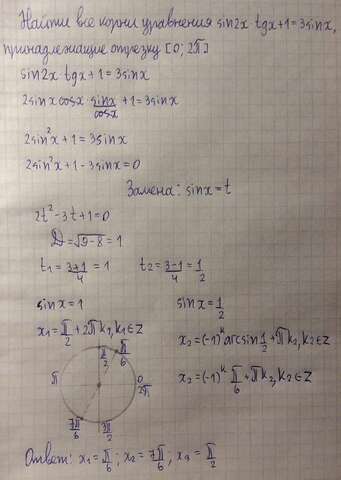 Найти все корни уравнения sin2x tgx+1=3sinx,
принадлежащие отрезку [0; 2π]
sin2x·tgx+1=3sinx
2sinx cosx · sinx/cosx +1=3sinx
2sin²x+1=3sinx
2sin²x+1-3sinx=0
Замена: sinx=t
2t²-3t+1=0
D=√9-8=1
t₁=3+1/4=1 t₂=3-1/4=1/2
sinx=1 sinx=1/2
x₁=π/2+2πk₁, k₁∈Z x₂=(-1)ᵏ arcsin 1/2+πk₂, k₂∈Z
x₂=(-1)ᵏ π/6+πk₂, k₂∈Z
π/2 π/6
π 0
2π
7π/6 3π/2
Ответ: x₁=π/6; x₂=7π/6, x₃=π/2